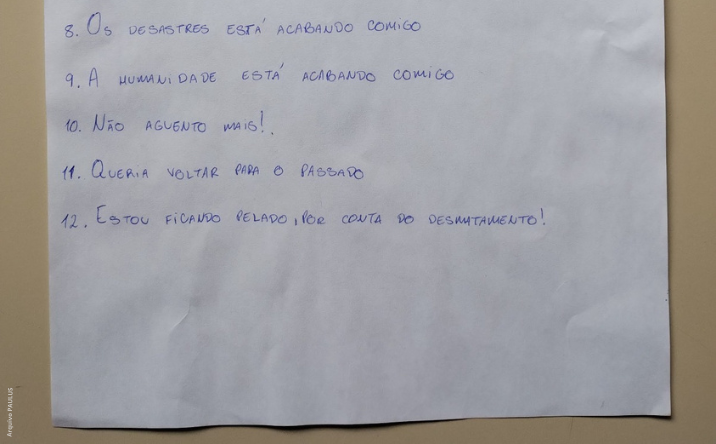 8. Os DESASTRES ESTÁ ACABANDO COMIGO
9. A HUMANIDADE ESTÁ ACABANDO COMIGO
10. NÃO AGUENTO MAIS!.
11. QUERIA VOLTAR PARA O PASSADO
12. ESTOU FICANDO PELADO, POR CONTA DO DESMATAMENTO!
Arquivo PAULUS